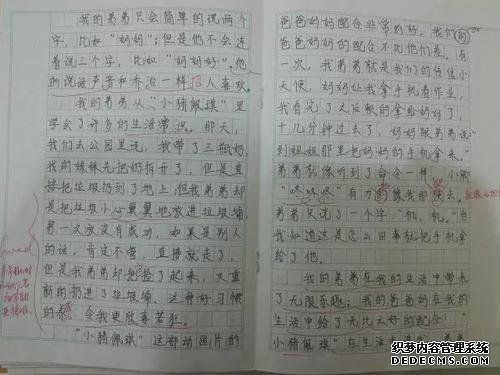 我的弟弟只会简单的说两个
字，比如“妈妈”；但是他不会连
着说三个字，比如“妈妈好”。他
的说话声音和乔治一样招人喜欢。
我的弟弟从“小猪佩琪”里
学会了许多的生活常识。那天，
我们去公园里玩，我带了三瓶奶，
我的妹妹先把奶拆开了，但是直
接把垃圾扔到了地上，但我弟弟却
是把垃圾小心翼翼地放进垃圾桶，
第一次放没有成功，如果是别人
的话，肯定不管，直接就走了，
但是我弟弟却把它捡了起来，又重
新的扔进了垃圾桶。这种好习惯
令我更欣喜若狂。
“小猪佩琪”这部动画片的
爸爸妈妈配合非常的好，我们的
爸爸妈妈的配合不比他们差。有
一次，我弟弟就是我们的传信小
天使，妈妈让我拿手机看作业，
我看完了之后
十几分钟过去了，妈妈跟弟弟说
到姐姐那里把妈妈的手机拿来。”
弟弟就像听到了命令一样，小脚
“咚咚咚”有力的像我那
弟弟只说了一个字：“机，机。”
我知道这是怎么回事就把手机拿
给了他。
我的弟弟在我的生活中带来
了无限乐趣；我的爸爸妈妈在我的
生活中给了无比之好的配合。
“小猪佩琪”在生活
国际作文网
www.gjzuowen.com